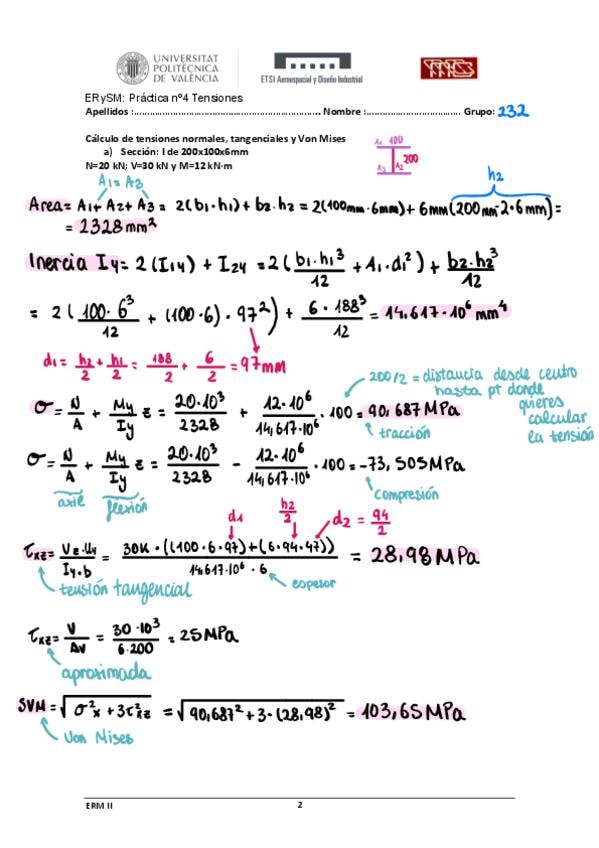 UNIVERSITAT
POLITÈCNICA
DE VALÈNCIA
ETSI Aeroespacial y Diseño Industrial
ERySM: Práctica nº4 Tensiones
Apellidos :.................................................................. Nombre :................................... Grupo: 232
Cálculo de tensiones normales, tangenciales y Von Mises
a) Sección: I de 200x100x6mm
N=20 kN; V=30 kN y M=12 kN·m
A1 100
A3 A2 200
A1 = A3
h2
Area = A1 + A2 + A3 = 2(b1·h1) + b2·h2 = 2(100mm·6mm) + 6mm(200mm-2·6mm) =
= 2328mm²
Inercia Iy = 2(I1y) + I2y = 2(b1·h1³/12 + A1·d1²) + b2·h2³/12
= 2(100·6³/12 + (100·6)·97²) + 6·188³/12 = 14,617·10⁶ mm⁴
d1 = h2/2 + h1/2 = 188/2 + 6/2 = 97mm
200/2 = distancia desde centro
hasta pt donde
quieres
calcular
la tensión
σ = N/A + My/Iy z = 20·10³/2328 + 12·10⁶/14,617·10⁶ ·100 = 90,687 MPa
tracción
σ = N/A + My/Iy z = 20·10³/2328 - 12·10⁶/14,617·10⁶ ·100 = -73,505 MPa
axil flexión
compresión
d1 h2/2 d2 = 94/2
τxz = Vz·Uy/Iy·b = 30K·((100·6·97)+(6·94·47))/14,617·10⁶·6 = 28,98 MPa
tensión tangencial
espesor
τxz = V/Av = 30·10³/6·200 = 25 MPa
aproximada
SVM = √σ²x + 3τ²xz = √90,687² + 3·(28,98)² = 103,65 MPa
Von Mises
ERM II 2